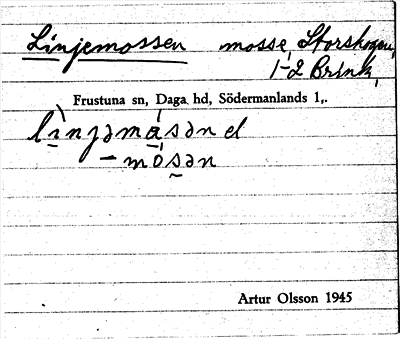 Linjemossen mosse, Storskogen,
1-2 Brink,
Frustuna sn, Daga hd, Södermanlands l,.
lìnjəmásən el
– mósən
Artur Olsson 1945